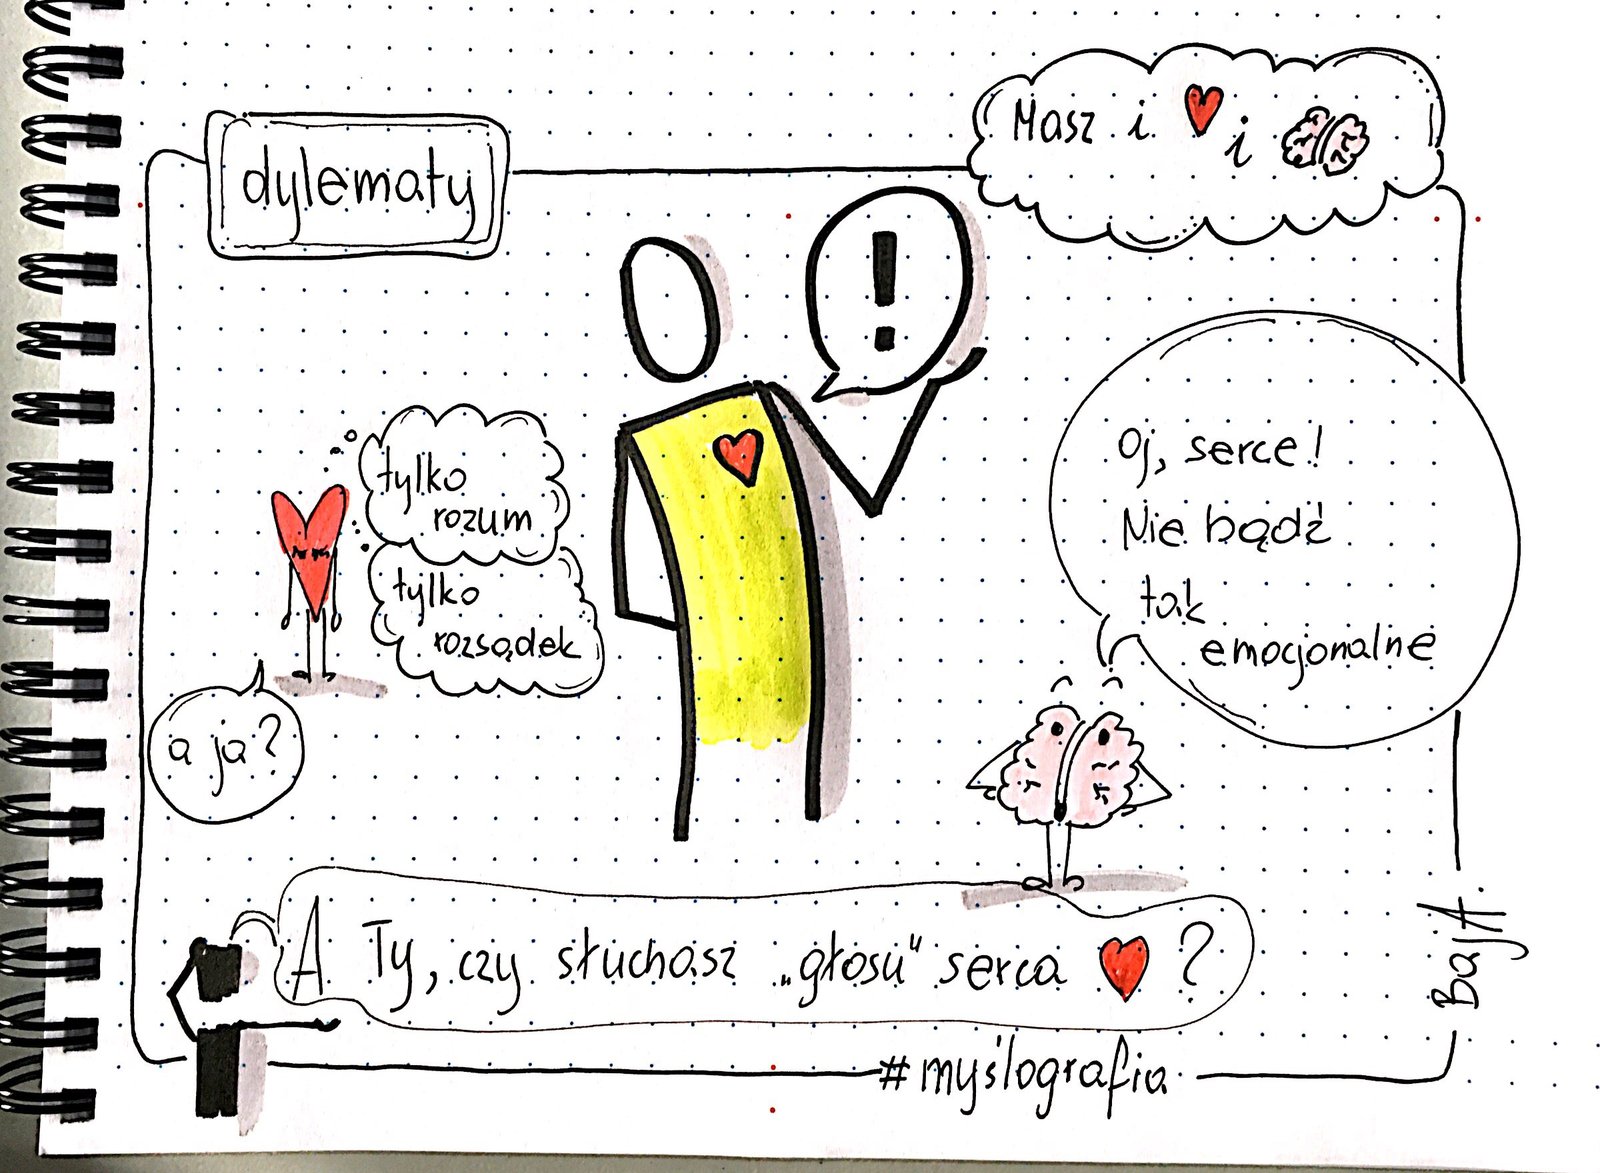 dylematy
Masz i ❤ i
!
tylko
rozum
tylko
rozsądek
a ja?
Oj, serce!
Nie bądź
tak
emocjonalne
A Ty, czy słuchasz „głosu" serca ❤ ?
#myślografia
BajA.